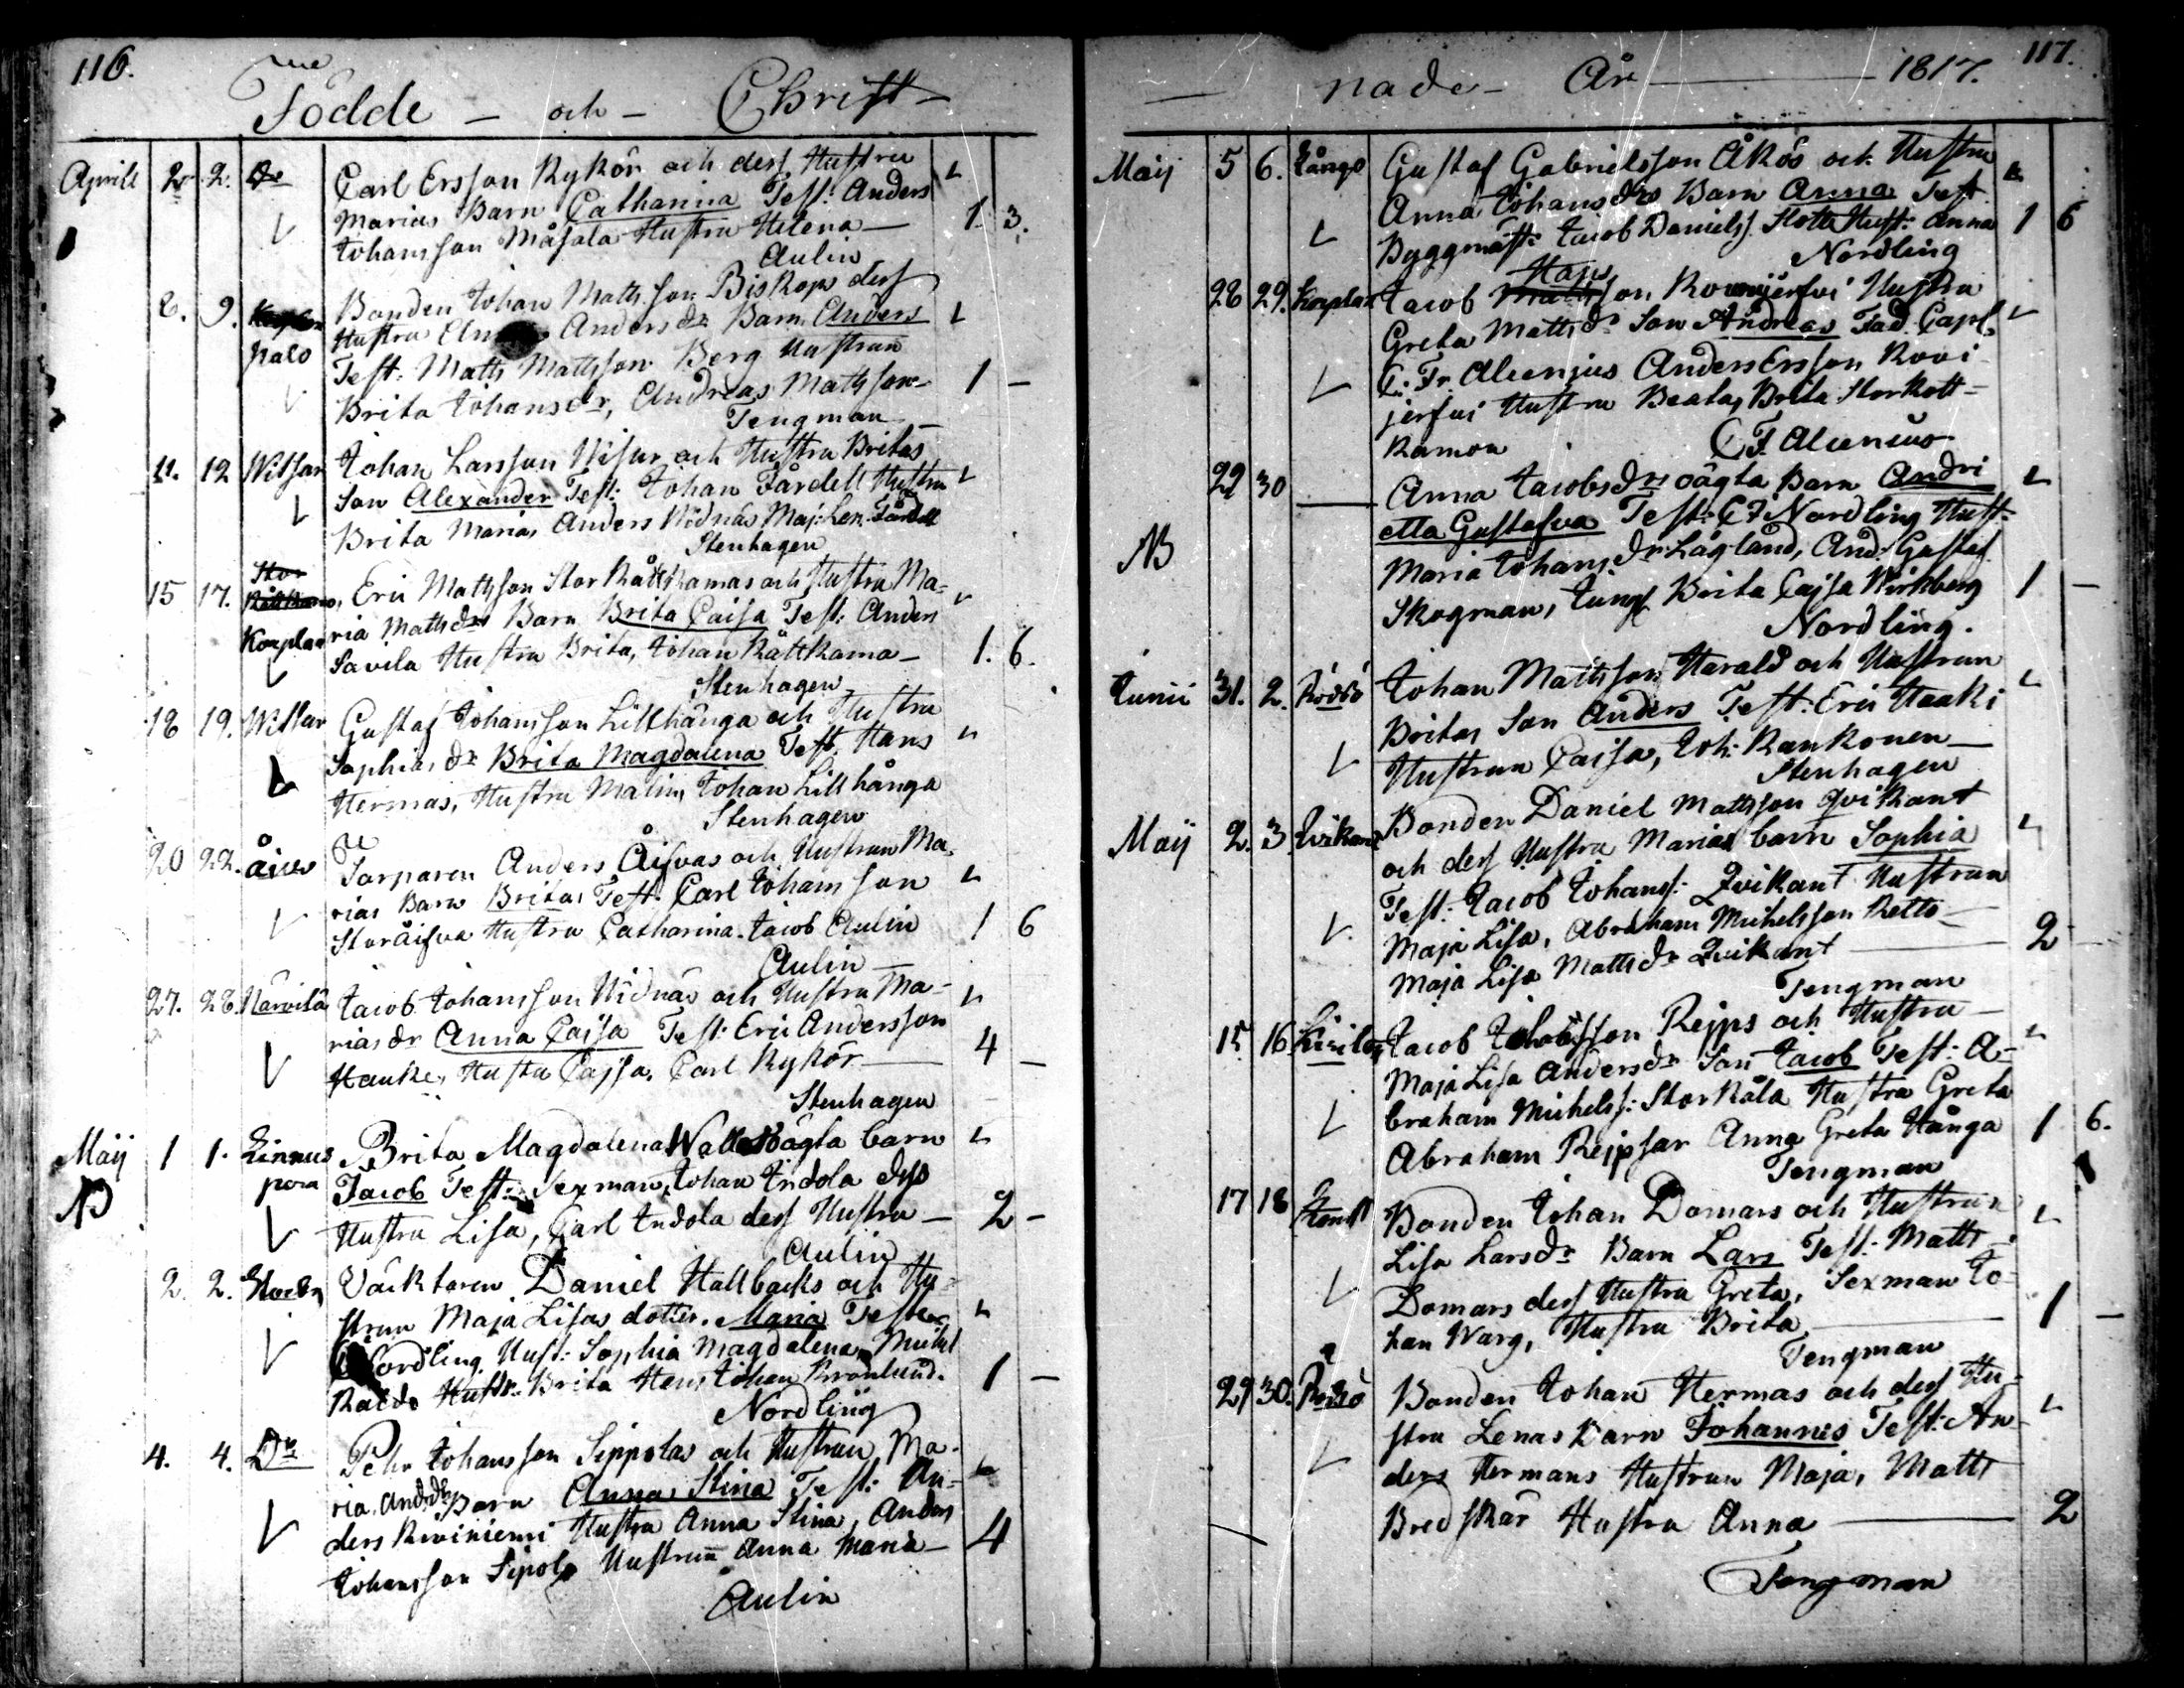 116.
Födde — och — Christ-
Aprill 2. 2. Do Carl Ersson Rykör och dess Hustru
Marias Barn Catharina Test: Anders
Johansson Måsala Hustru Helena — 1. 3.
Aulin
8. 9. Bonden Johan Matsson Biskops dess
Hustru Andersdr Barn Anders
palo Test: Matts Mattsson Berg Hustrun
Brita Johansdr, Andreas Mattsson — 1 —
Tengman
11. 12 Witsar Johan Larsson Wisur och Hustru Britas
Son Alexander Test: Johan Fårdell Hustru
Brita Maria, Anders Nidnäs Maj: Len: Fårdell
Stenhagen
15 17. Eric Mattsson Stor Råttkamas och Hustru Ma-
Korplax ria Mattsdrs Barn Brita Caisa Test: Anders
Savila Hustru Brita, Johan Råttkama — 1. 6.
Stenhagen
18 19. Witsar Gustaf Johansson Lillhånga och Hustru
Sophias dr Brita Magdalena Test. Hans
Hermas, Hustru Malin, Johan Lillhånga
Stenhagen
20 22. Torparen Anders Åisvas och Hustrun Ma-
rias Barn Britas Test: Carl Johansson
Storåisva Hustru Catharina. Jacob Aulin 1 6
Aulin —
27. 28. Närvilä Jacob Johansson Nidnäs och Hustru Ma-
rias dr Anna Caisa Test: Eric Andersson
Hauke, Hustru Cajsa, Carl Rykör — 4 —
Stenhagen
Maij 1 1. Linnus Brita Magdalena oägta barn
NB pera Jacob Test: Sexman Johan Indola dess
Hustru Lisa, Carl Indola dess Hustru — 2 —
Aulin
2. 2. Väcktaren Daniel Hallbacks och Hu-
strun Maja Lisas dotter. Maria Test:
Nordling Hust: Sophia Magdalena, Michel
Hustr: Brita Johan Kronlund. 1 —
Nordling
4. 4. Do Pehr Johansson Sippolas och Hustrun Ma-
ria Andsdrs Barn Anna Stina Test: An-
ders Kiviniemi Hustru Anna Stina, Anders
Johansson Sipola Hustrun Anna Maria — 4
Aulin
117.
— nade — År — 1817.
Maij 5 6. Långö Gustaf Gabrielsson Åkös och Hustru
Anna Johansdrs Barn Anna Test
Byggmäst: Jacob Danielss. Slotte Hust: Anna 1 6
Nordling
28 29. Korplax Jacob Hansson, Hustru
Greta Mattsdr Son Andreas Fad. Capl.
C. Fr. Alcenius Anders Ersson Rovi-
jerfvi Hustru Beata, Brita Storkott-
kamon C F. Alcenius
29 30 — Anna Jacobsdrs oägta Barn Andri
etta Gustafva Test: C F Nordling Hust:
NB Maria Johansdr Lågland, And: Gustaf
Skogman, Jungf Brita Cajsa Wirkberg 1 —
Nordling.
Junii 31. 2. Rödsö Johan Mattsson Harald och Hustrun
Britas Son Anders Test: Eric Haaki
Hustrun Caisa, Joh: Kankonen —
Stenhagen
Maij 2. 3. Qvikant Bonden Daniel Mattsson Qvikant
och dess Hustru Marias barn Sophia
Test: Jacob Johanss: Qvikant Hustrun
Maja Lisa, Abraham Michelsson Ketto —
Maja Lisa Mattsdr Qvikant — 2
Tengman
15 16 Jacob Jacobsson Rejps och Hustru —
Maja Lisa Andersdr Son Jacob Test: A-
braham Michelss: Storkåla Hustru Greta
Abraham Rejpsar Anna Greta Hånga 1 6.
Tengman
17 18 Bonden Johan Domars och Hustrun
Lisa Larsdr Barn Lars Test: Matts
Domars dess Hustru Greta, Sexman Jo-
han Warg, Hustru Brita — 1 —
Tengman
29 30. Rödsö Bonden Johan Hermas och dess Hu-
stru Lenas Barn Johannes Test: An-
ders Hermans Hustrun Maja, Matts
Bredskär Hustru Anna — 2
Tengman